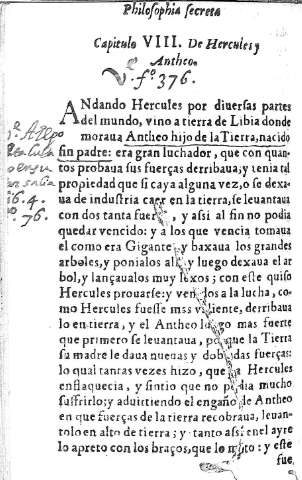 Philosophia secreta
Capitulo VIII. De Hercules y
Antheo.
V. fº 376.
ANdando Hercules por diuersas partes
del mundo, vino a tierra de Libia donde
moraua Antheo hijo de la Tierra, nacido
sin padre: era gran luchador, que con quan-
tos probaua sus fuerças derribaua; y tenia tal
propiedad que si caya alguna vez, o se dexa-
ua de industria caer en la tierra, se leuantaua
con dos tanta fuerça, y assi al fin no podia
quedar vencido: y a los que vencia tomaua
el como era Gigante, y baxaua los grandes
arboles, y ponialos alli, y luego dexaua el ar
bol, y lançaualos muy lexos; con este quiso
Hercules prouarse: y venidos a la lucha, co-
mo Hercules fuesse mas valiente, derribaua
lo en tierra, y el Antheo luego mas fuerte
que primero se leuantaua, porque la Tierra
su madre le daua nueuas y dobladas fuerças:
lo qual tantas vezes hizo, que a Hercules
enflaquecia, y sintio que no podia mucho
suffrirlo: y aduirtiendo el engaño de Antheo
en que fuerças de la tierra recobraua, leuan-
tolo en alto de tierra; y tanto assi en el ayre
lo apreto con los braços, que lo mato: y este
fue,
6.4.
76.